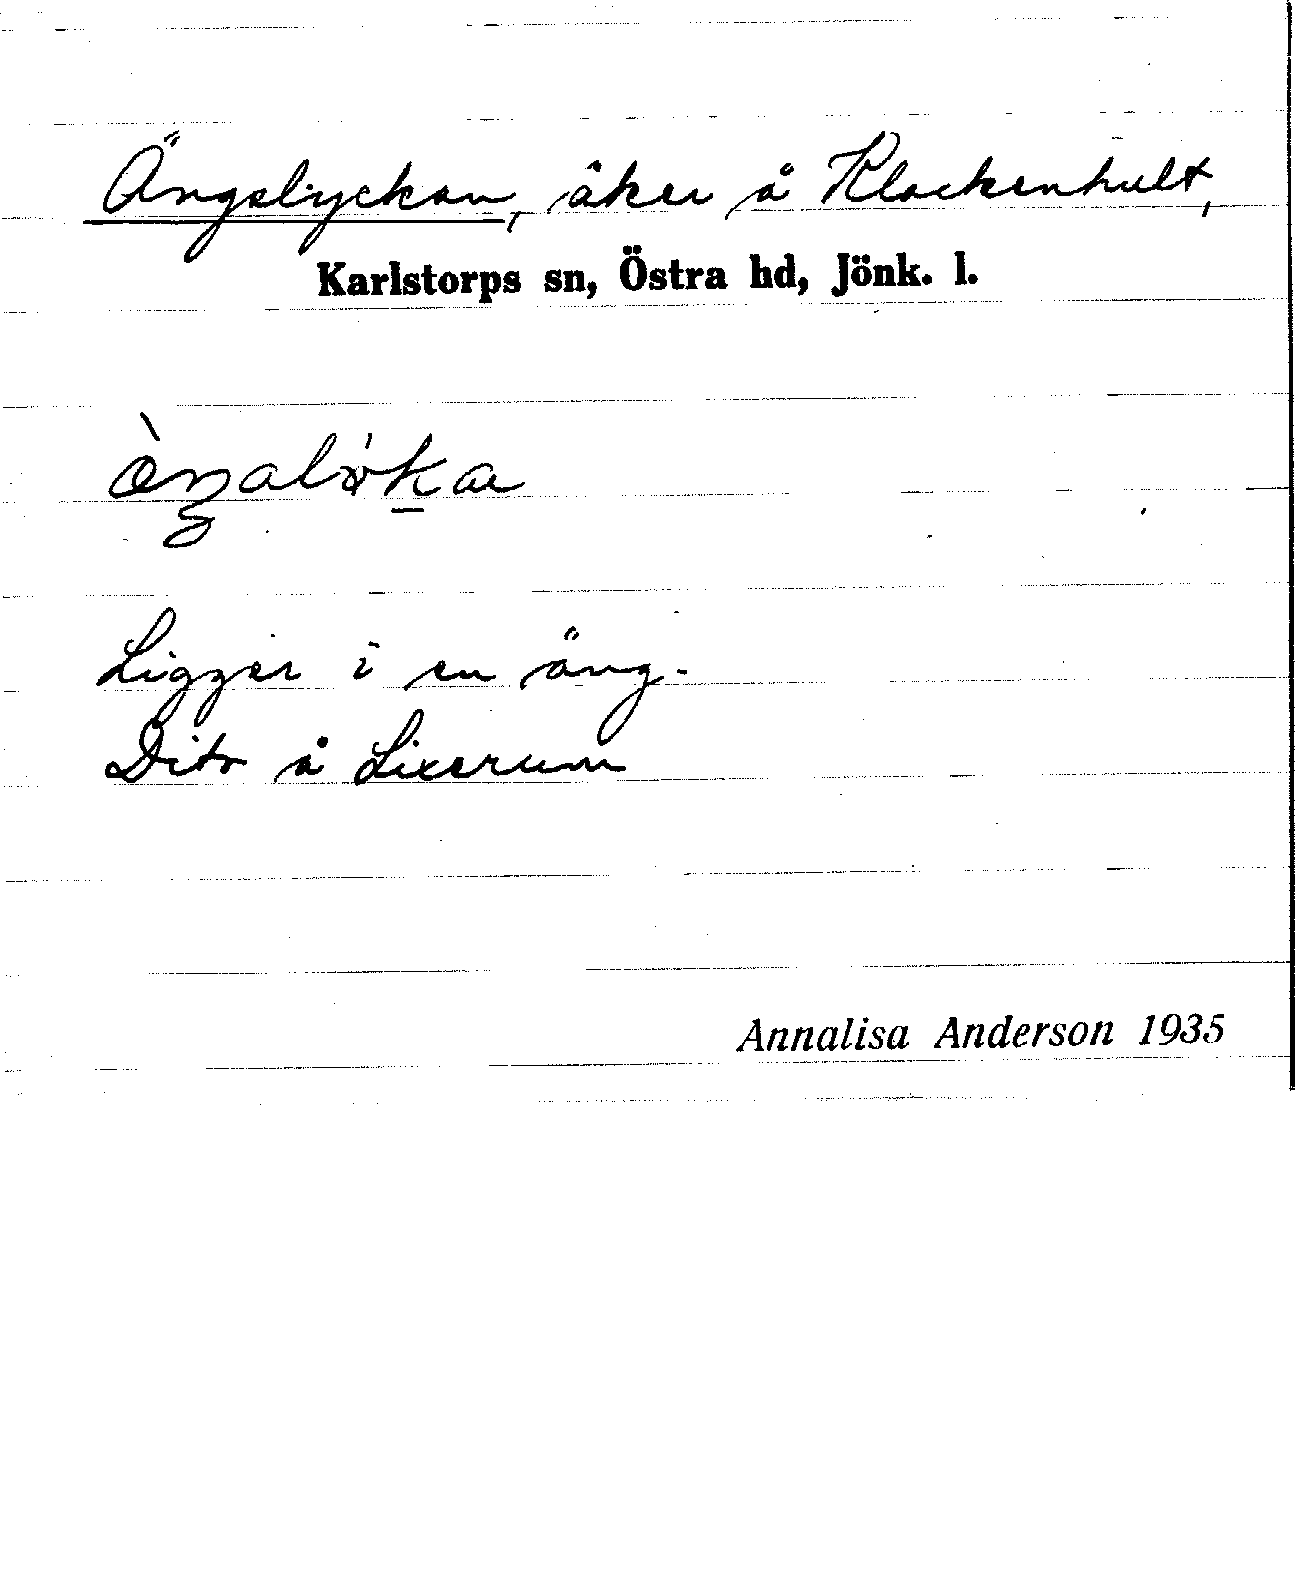 Ängslyckan, åker å Klockenhult,
Karlstorps sn, Östra hd, Jönk. l.
Ligger i en äng.
Dito å Lixerum
Annalisa Anderson 1935